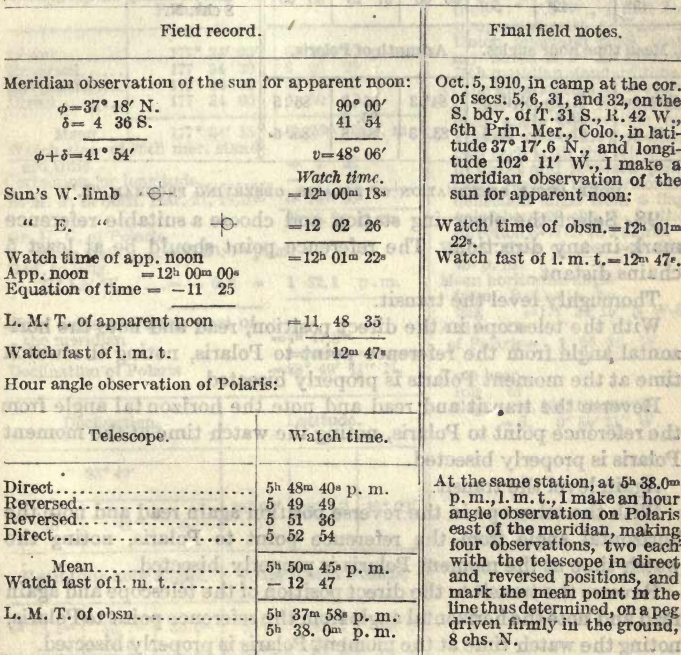 Field record.
Meridian observation of the sun for apparent noon:
ϕ=37° 18′ N. 90° 00′
δ= 4 36 S. 41 54
ϕ+δ=41° 54′ v=48° 06′
Watch time.
Sun's W. limb =12h 00m 18s
“ E. “ =12 02 26
Watch time of app. noon =12h 01m 22s
App. noon =12h 00m 00s
Equation of time = −11 25
L. M. T. of apparent noon =11 48 35
Watch fast of l. m. t. 12m 47s
Hour angle observation of Polaris:
Telescope. Watch time.
Direct 5h 48m 40s p. m.
Reversed 5 49 49
Reversed 5 51 36
Direct 5 52 54
Mean 5h 50m 45s p. m.
Watch fast of l. m. t. − 12 47
L. M. T. of obsn. 5h 37m 58s p. m.
5h 38. 0m p. m.
Final field notes.
Oct. 5, 1910, in camp at the cor.
of secs. 5, 6, 31, and 32, on the
S. bdy. of T. 31 S., R. 42 W.,
6th Prin. Mer., Colo., in lati-
tude 37° 17′.6 N., and longi-
tude 102° 11′ W., I make a
meridian observation of the
sun for apparent noon:
Watch time of obsn.=12h 01m
22s.
Watch fast of l. m. t.=12m 47s.
At the same station, at 5h 38.0m
p. m., l. m. t., I make an hour
angle observation on Polaris
east of the meridian, making
four observations, two each
with the telescope in direct
and reversed positions, and
mark the mean point in the
line thus determined, on a peg
driven firmly in the ground,
8 chs. N.